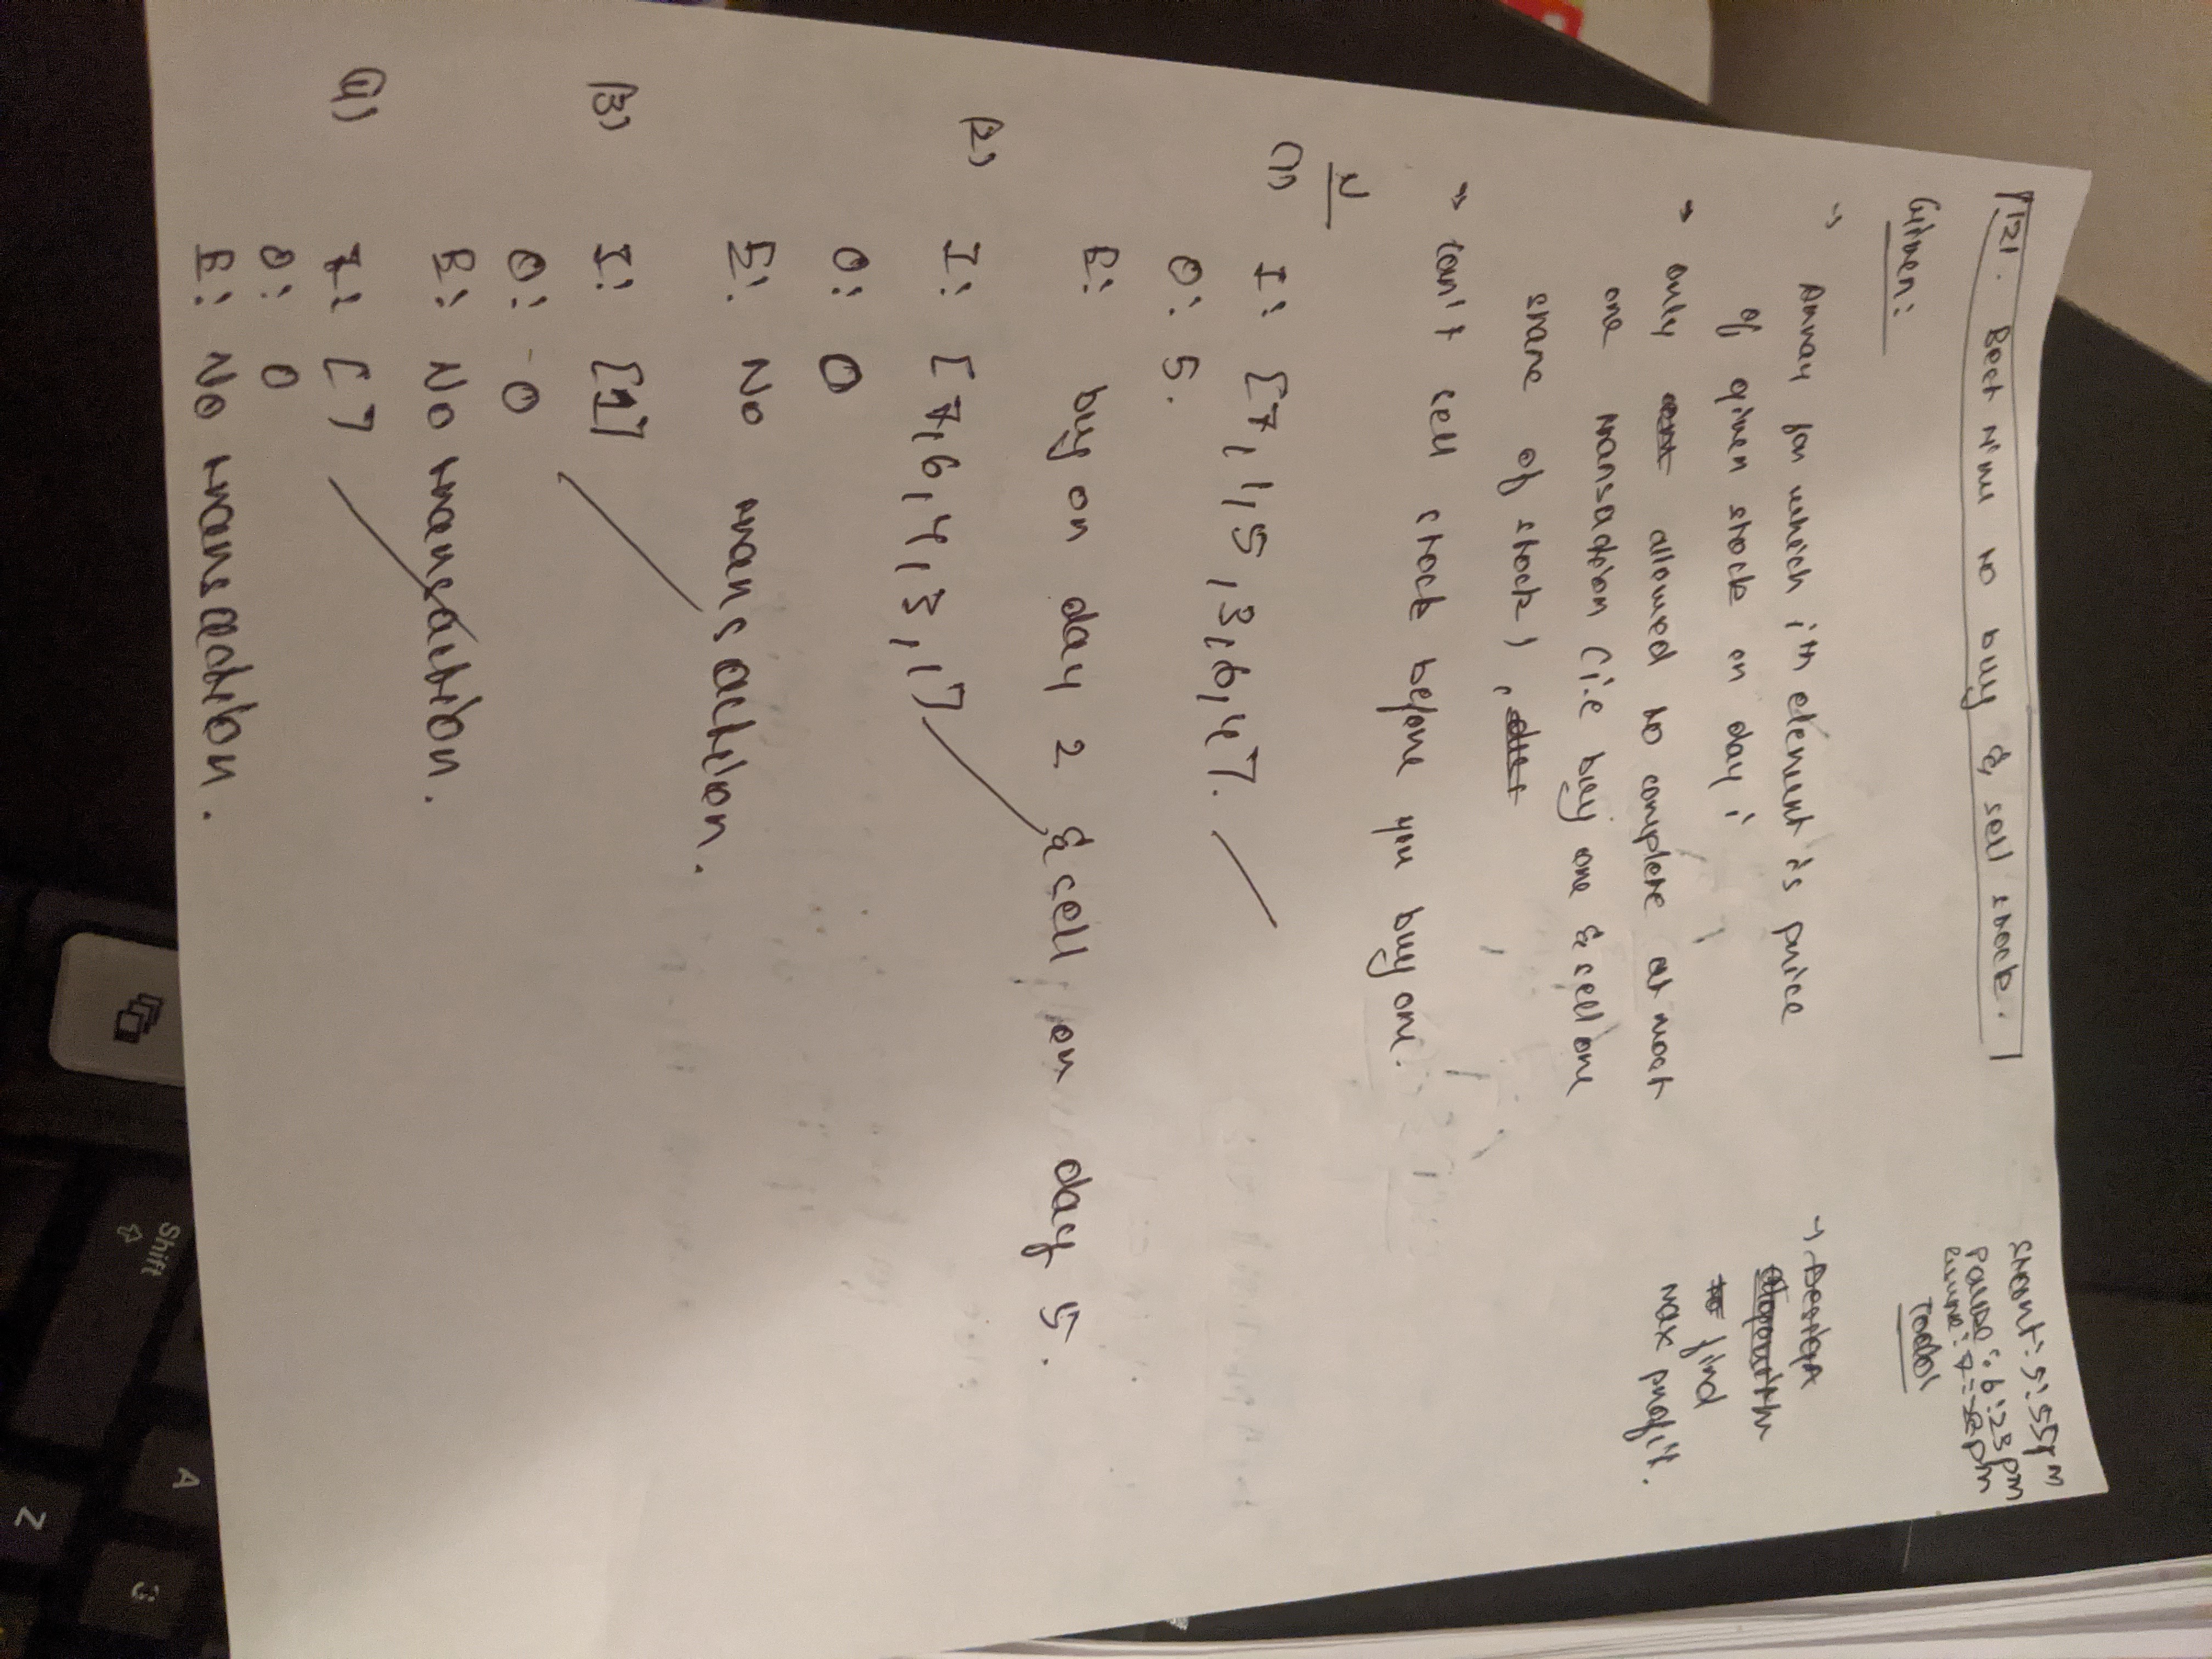 121. Best time to buy & sell stock.
Start: 5:55pm
Pause: 6:23pm
Given:
Todo!
→ Array for which ith element is price
of given stock on day i
→ Design
→ only allowed to complete at most
one transaction (i.e buy one & cell one
share of stock),
find
max profit.
→ can't cell stock before you buy one.
(1) I: [7,1,5,3,6,4].
O: 5.
E: buy on day 2 & cell on day 5.
(2) I: [7,6,4,3,1]
O: 0
E: No transaction.
(3) I: [1]
O: 0
E: No transaction.
(4) I: []
O: 0
E: No transaction.
Shift
A
Z